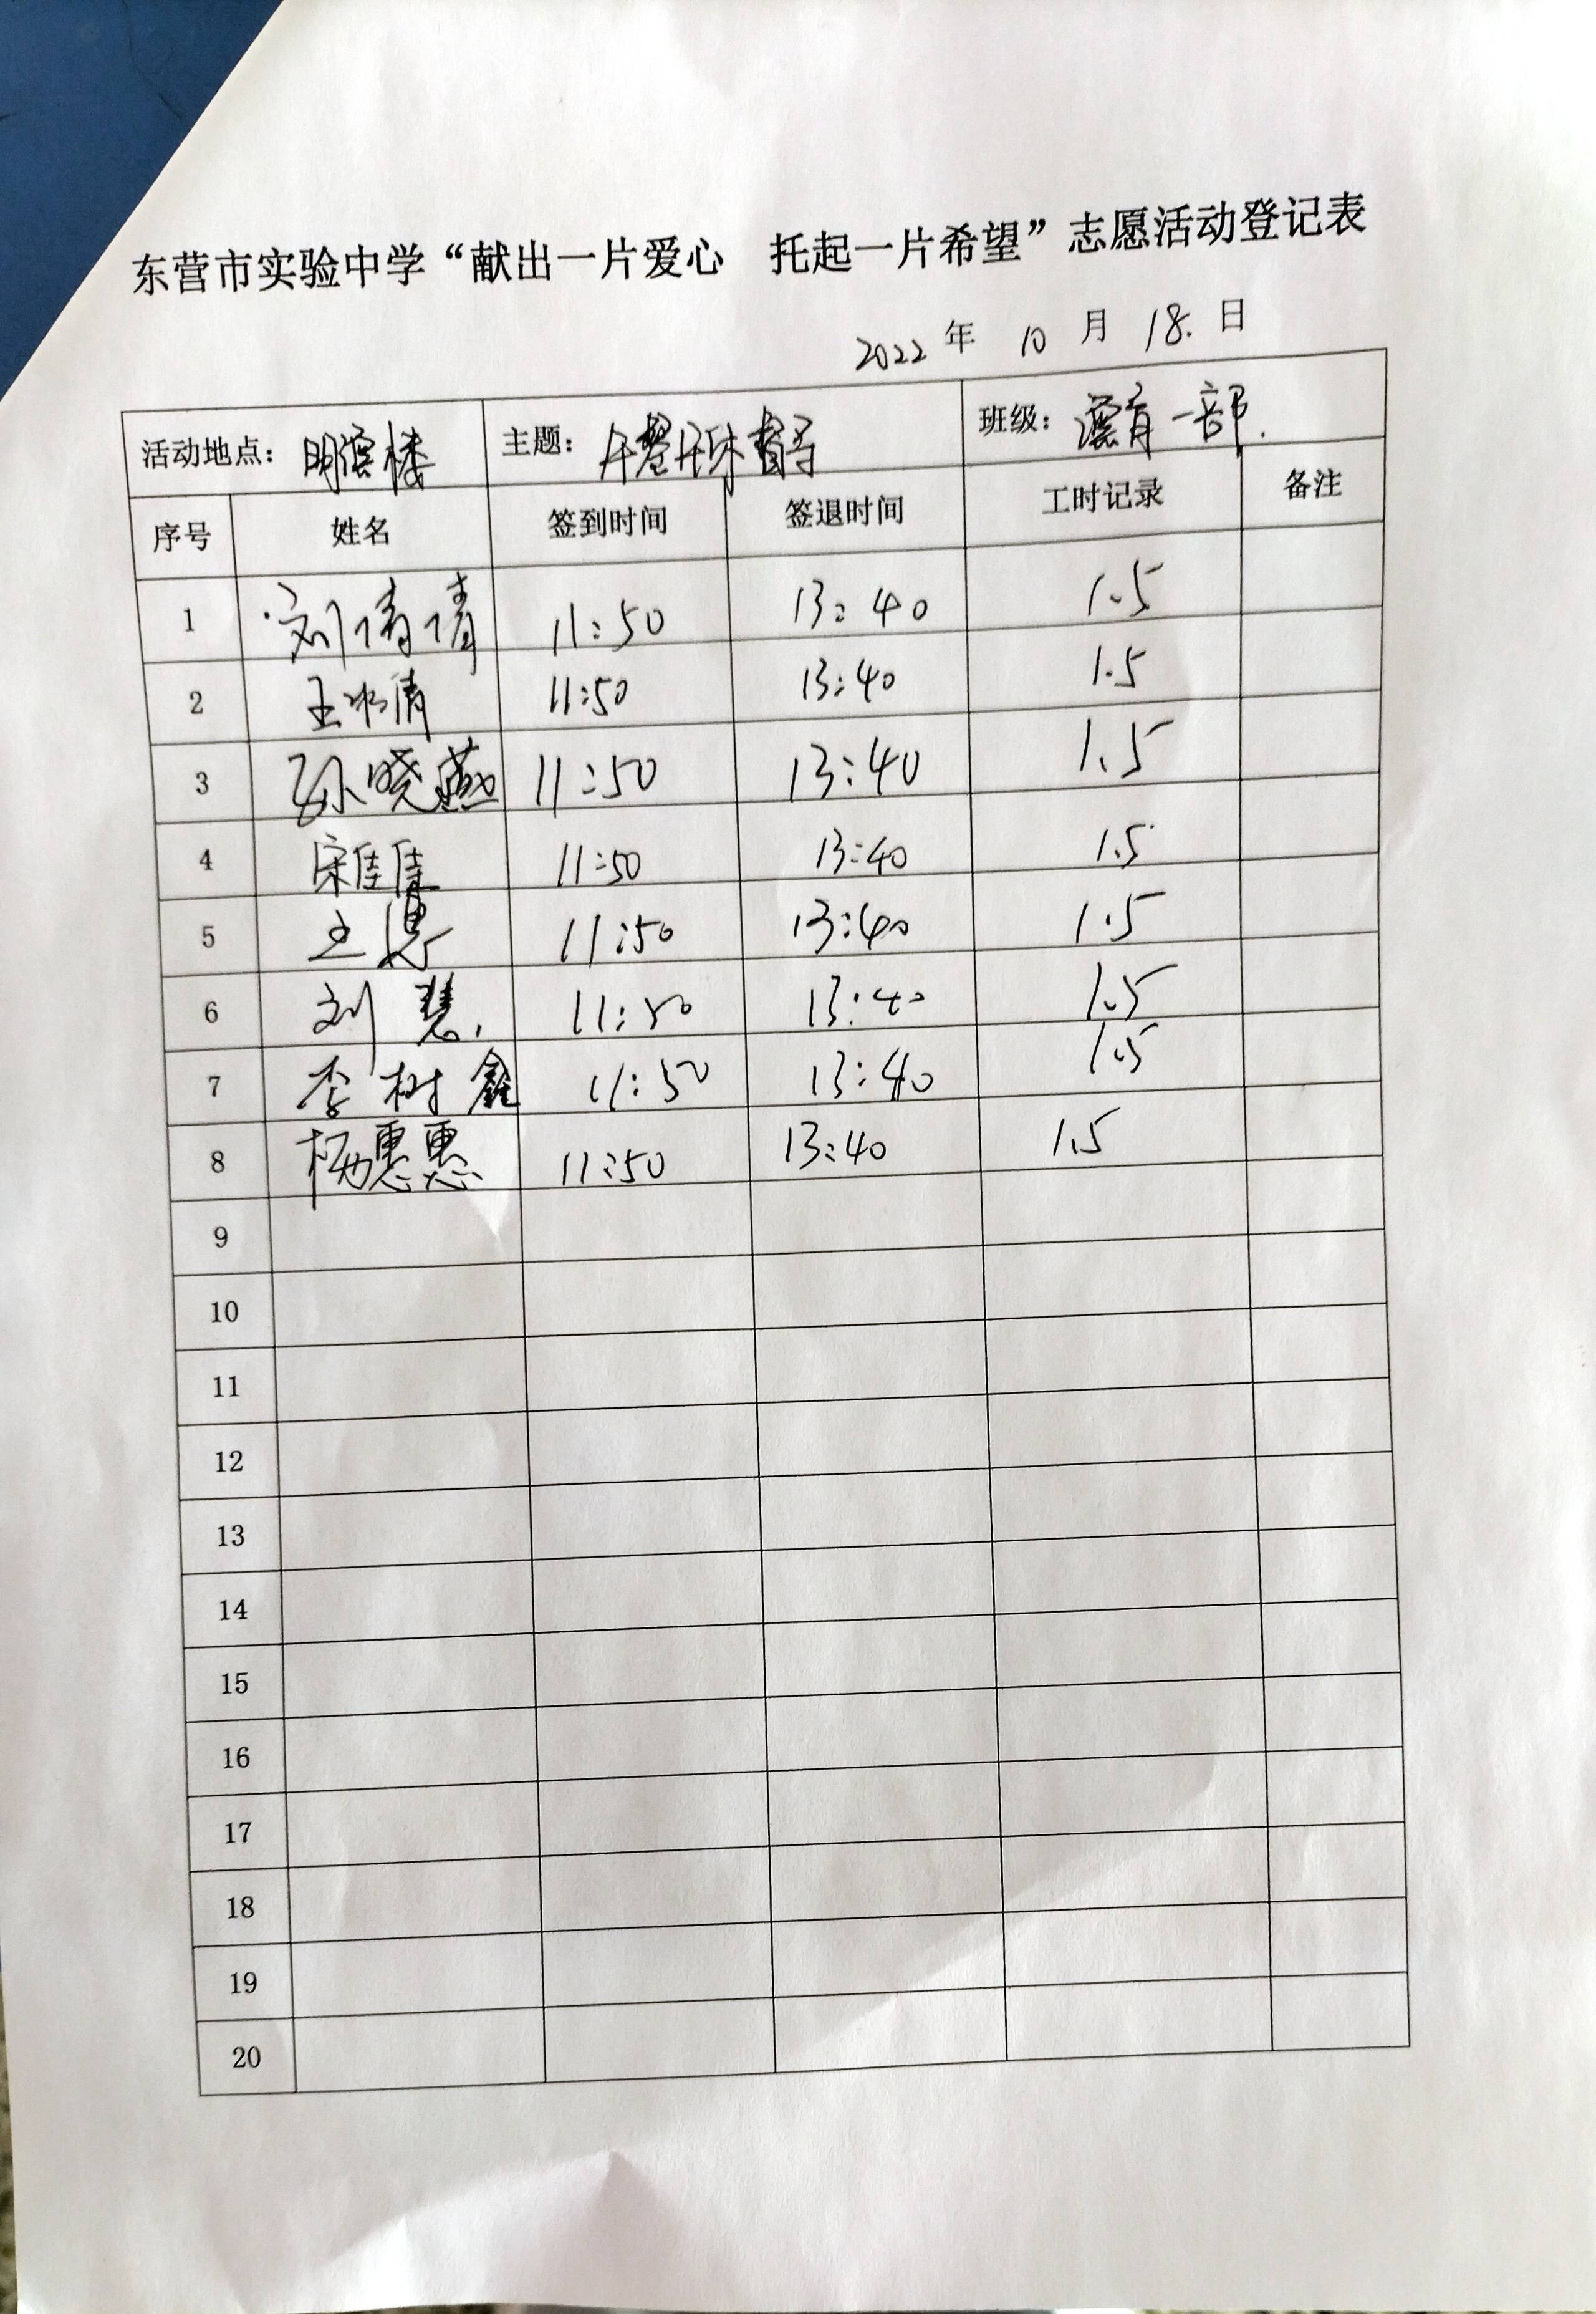 东营市实验中学“献出一片爱心 托起一片希望”志愿活动登记表
2022 年 10 月 18. 日
活动地点: 明滨楼 主题: 午餐午休看导 班级: 滨育一部.
序号 姓名 签到时间 签退时间 工时记录 备注
1 刘倩倩 11:50 13:40 1.5
2 王冰倩 11:50 13:40 1.5
3 孙晓燕 11:50 13:40 1.5
4 宋佳佳 11:50 13:40 1.5
5 王 11:50 13:40 1.5
6 刘慧 11:50 13:40 1.5
7 李树鑫 11:50 13:40 1.5
8 杨惠惠 11:50 13:40 1.5
9
10
11
12
13
14
15
16
17
18
19
20